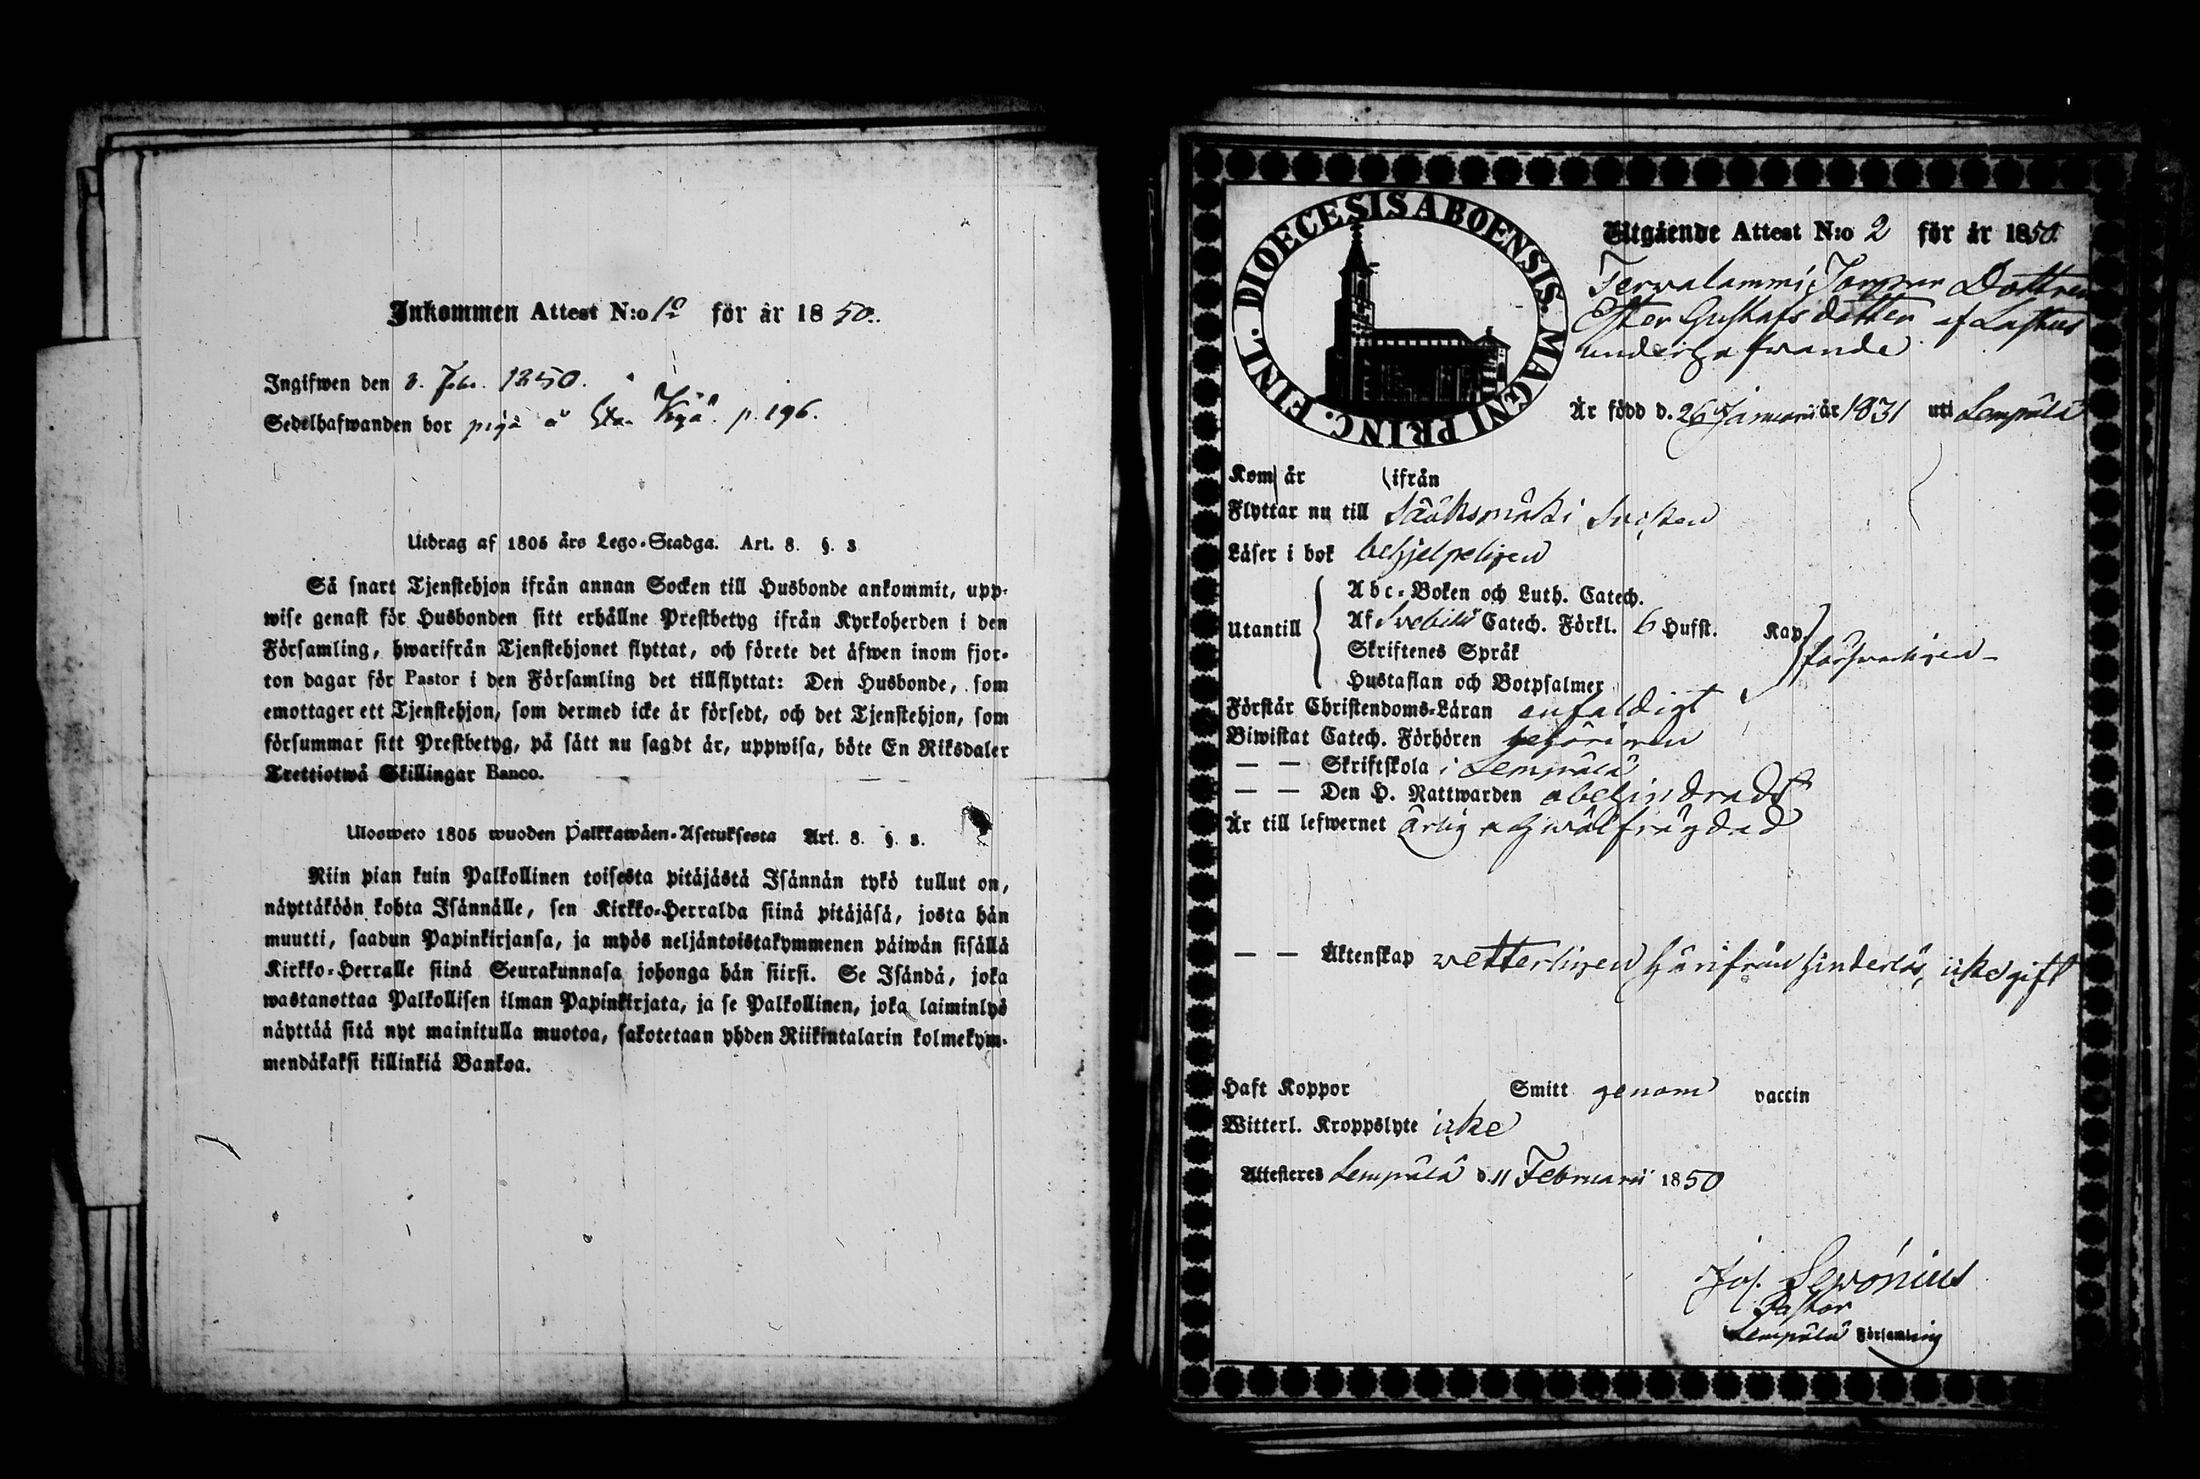 Inkommen Attest N:o 10 för år 1850.
Ingifwen den 8. Febr. 1850.
Sedelhafwanden bor piga å p. 196.
Utdrag af 1805 års Lego-Stadga. Art. 8. §. 3
Så snart Tjenstehjon ifrån annan Socken till Husbonde ankommit, upp-
wise genast för Husbonden sitt erhållne Prestbetyg ifrån Kyrkoherden i den
Församling, hwarifrån Tjenstehjonet flyttat, och förete det äfwen inom fjor-
ton dagar för Pastor i den Församling det tillflyttat: Den Husbonde, som
emottager ett Tjenstehjon, som dermed icke är försedt, och det Tjenstehjon, som
försummar sitt Prestbetyg, på sätt nu sagdt är, uppwisa, böte En Riksdaler
Trettiotwå Skillingar Banco.
Ulosweto 1805 wuoden Palkkawäen-Asetuksesta Art. 8. §. 3.
Niin pian kuin Palkollinen toisesta pitäjästä Isännän tykö tullut on,
näyttäköön kohta Isännälle, sen Kirkko-Herralda siinä pitäjäsä, josta hän
muutti, saadun Papinkirjansa, ja myös neljäntoistakymmenen päiwän sisällä
Kirkko-Herralle siinä Seurakunnasa johonga hän siirsi. Se Isändä, joka
wastanottaa Palkollisen ilman Papinkirjata, ja se Palkollinen, joka laiminlyö
näyttää sitä nyt mainitulla muotoa, sakotetaan yhden Riikintalarin kolmekym-
mendäkaksi killinkiä Bankoa.
DIOECESIS ABOENSIS. MAGNI PRINC. FINL.
Utgående Attest N:o 2 för år 1850.
Terwalammi Dottren
Ester Gustafsdotter af Lastus
underhafwande
Är född d. 26 Januarii år 1831 uti Lempälä
Kom år ifrån
Flyttar nu till Sääksmäki Socken
Läser i bok behjelpeligen
Abc-Boken och Luth. Catech.
Utantill Af Svebilii Catech. Förkl. 6 Hufst. Kap.
Skriftenes Språk försvarligen
Hustaflan och Botpsalmer
Förstår Christendoms-Läran enfaldigt
Biwistat Catech. Förhören behörigen
— — Skriftskola i Lempälä
— — Den H. Nattwarden obehindradt
Är till lefwernet ärlig och wälfrägdad
— — Äktenskap wetterligen härifrån hinderlös, icke gift
Haft Koppor Smitt genom vaccin
Witterl. Kroppslyte icke
Attesteres Lempälä d. 11 Februarii 1850
Jos. Lewonius
Pastor
Lempälä Församling